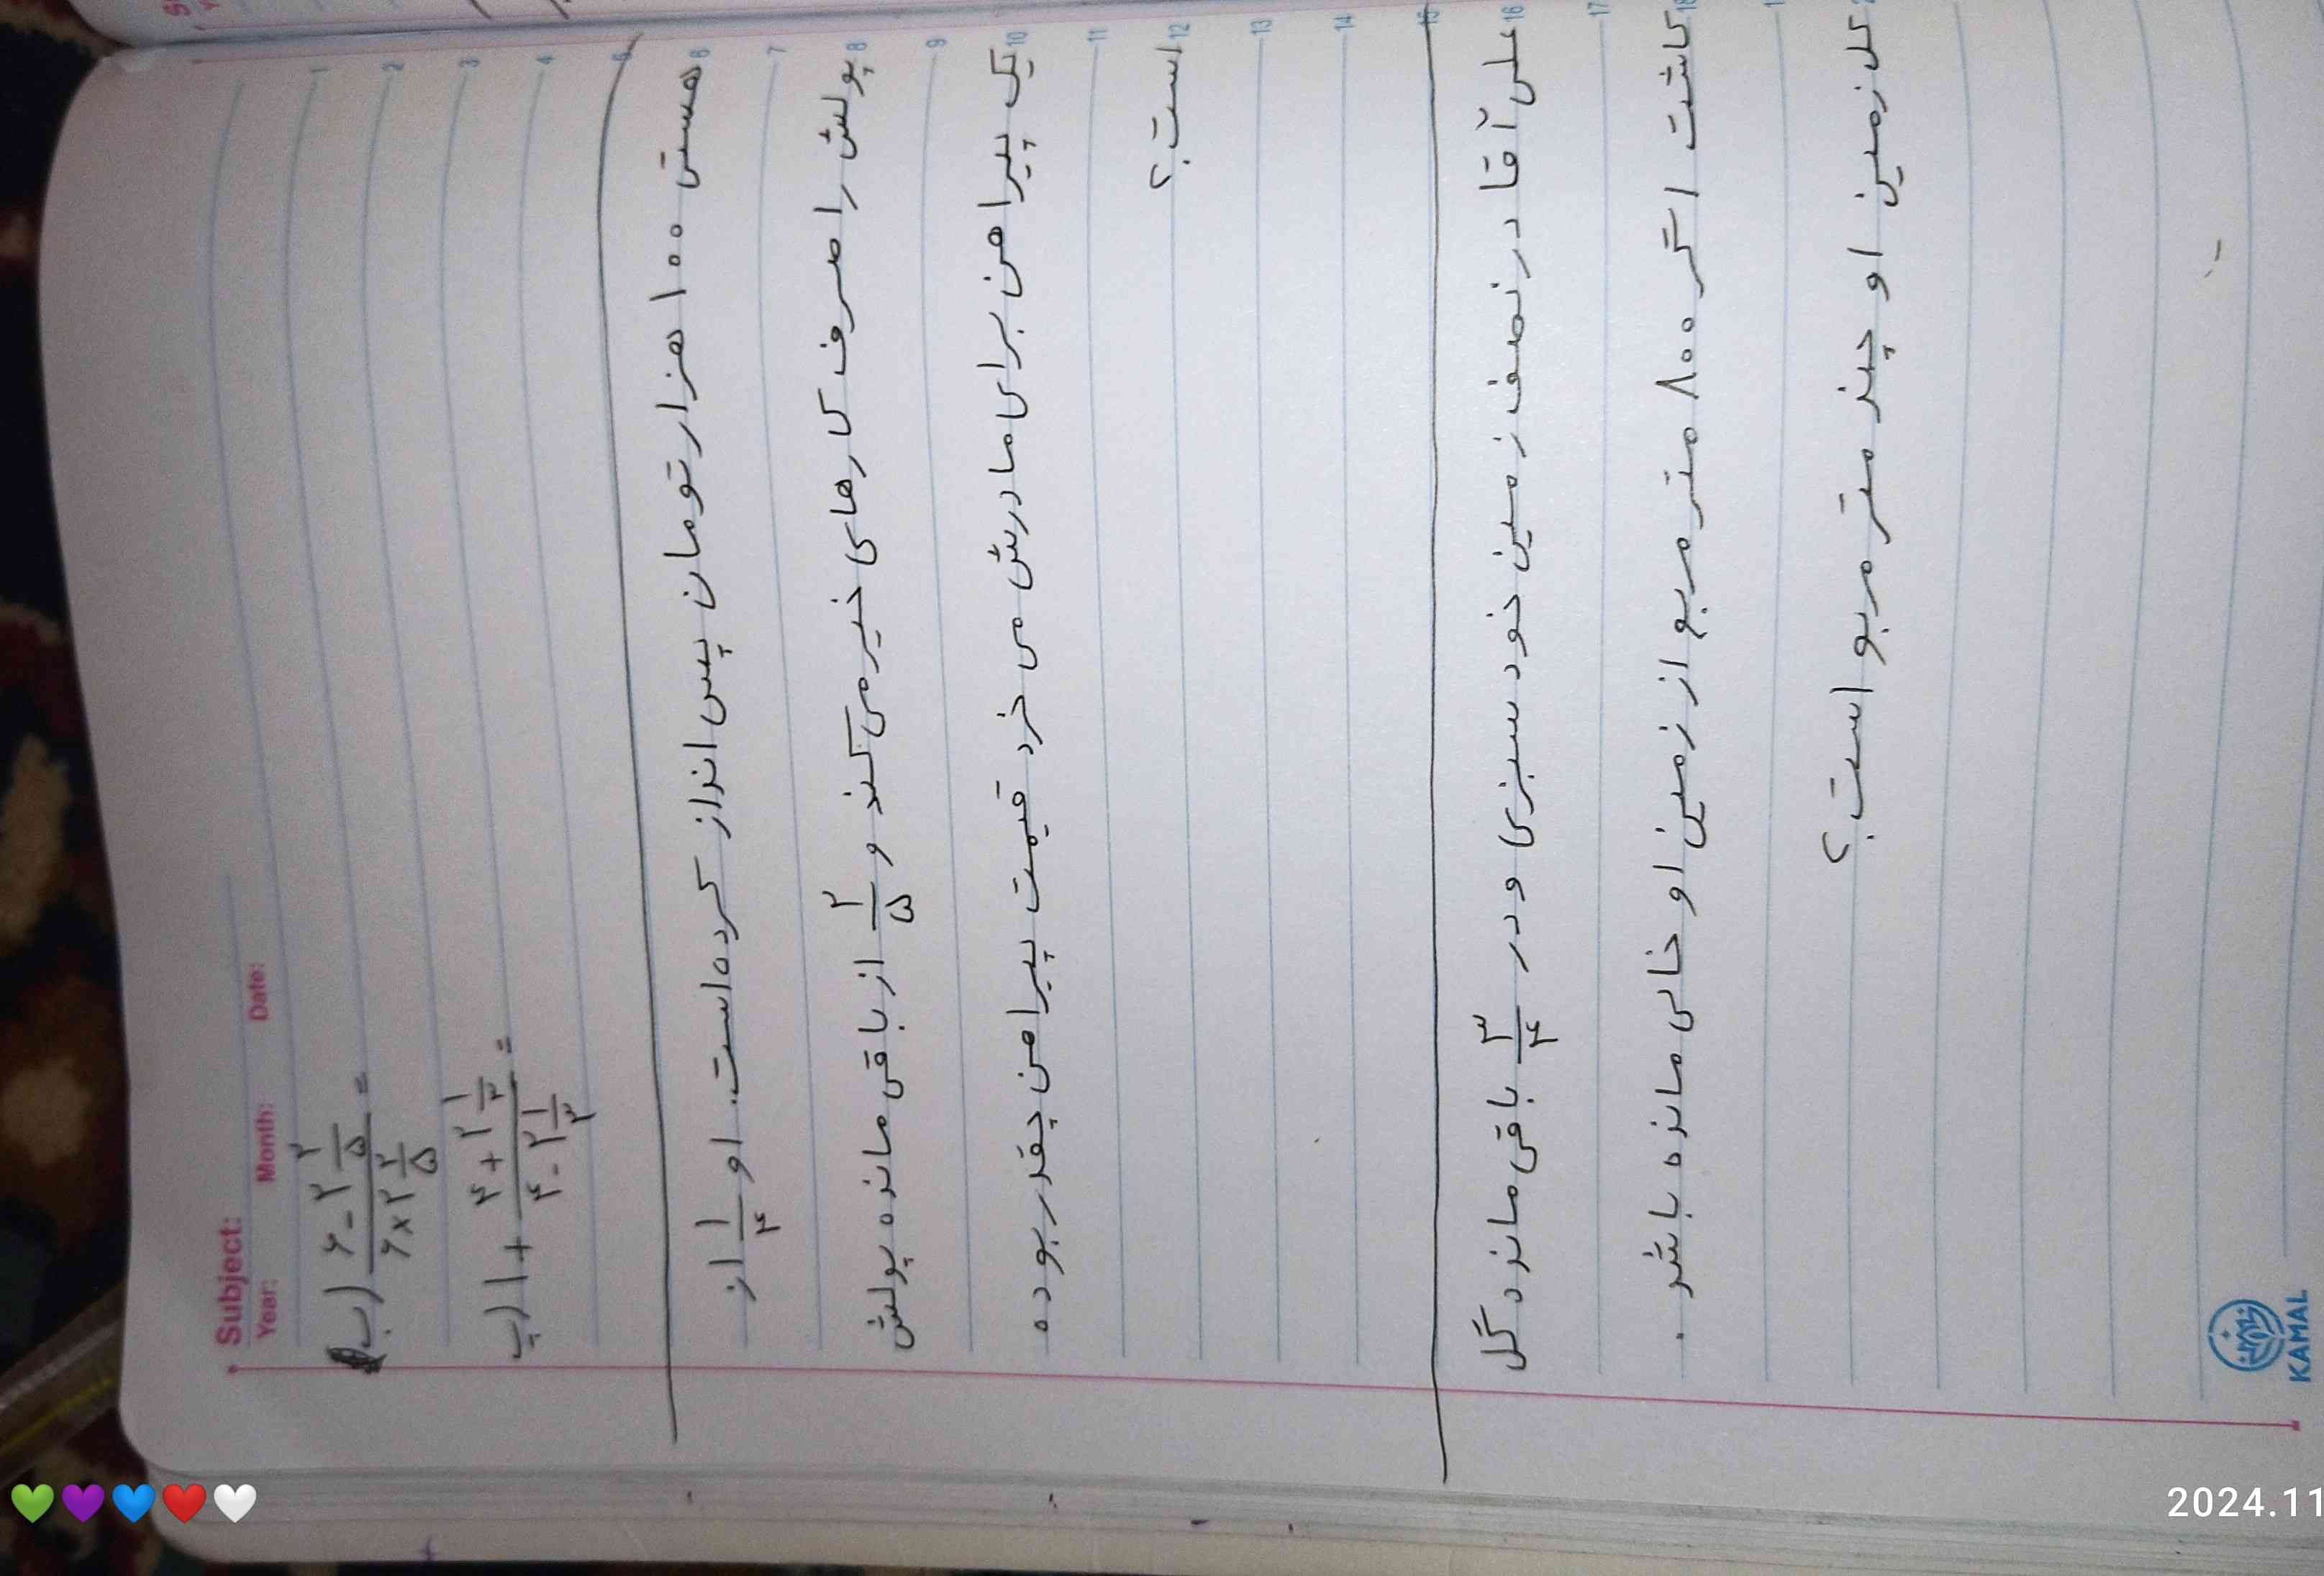 Subject:
Year: Month: Date:
ب) (۶-۲ ۲/۵)/(۶×۲ ۲/۵) =
پ) ۱+ (۴+۲ ۱/۳)/(۴-۲ ۱/۳) =
هستی ۱۰۰ هزار تومان پس انداز کرده است. او ۱/۴ از
پولش را صرف کارهای خیر می کند و ۲/۵ از باقی مانده پولش
یک پیراهن برای مادرش می خرد قیمت پیراهن چقدر بوده
است؟
علی آقا در نصف زمین خود سبزی و در ۳/۴ باقی مانده گل
کاشت اگر ۸۰۰ متر مربع از زمین او خالی مانده باشد.
کل زمین او چند متر مربو است؟
1
2
3
4
5
6
7
8
9
10
11
12
13
14
15
16
17
18
KAMAL
2024.11